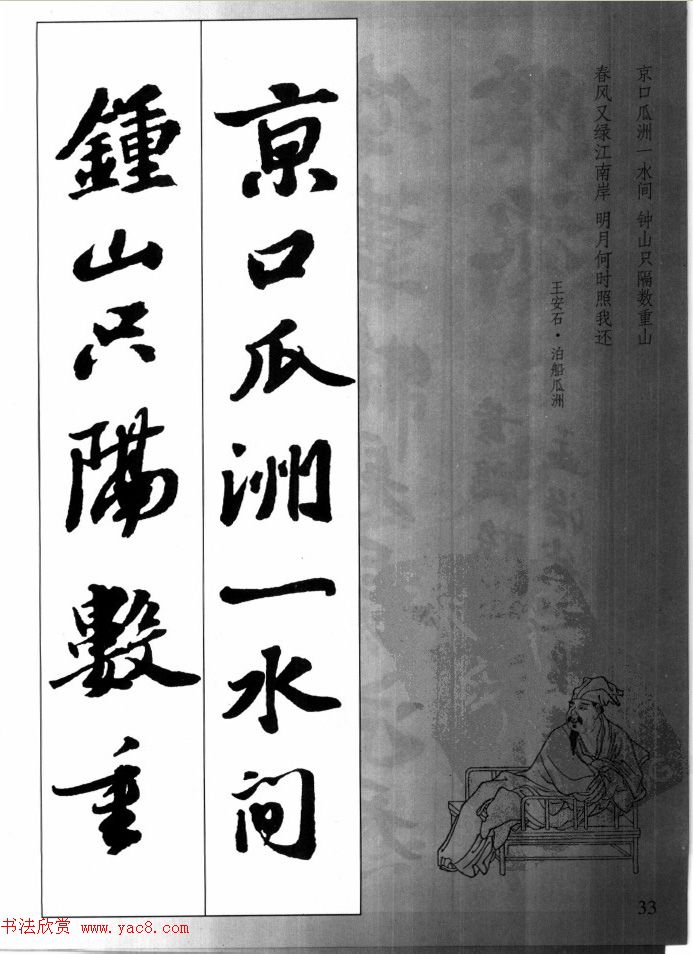 京口瓜洲一水间 钟山只隔数重山
春风又绿江南岸 明月何时照我还
王安石·泊船瓜洲
京口瓜洲一水間
鍾山只隔數重
33
书法欣赏 www.yac8.com